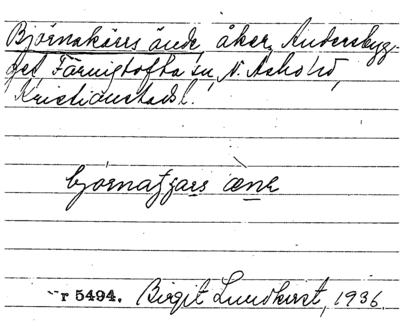 Björnakärrs ände, åker, Andersbyg-
get Färingtofta sn, N. Åsbo hd,
Kristianstads l.
björnaʃɶars ænk
r 5494. Birgit Lundkvist, 1936.